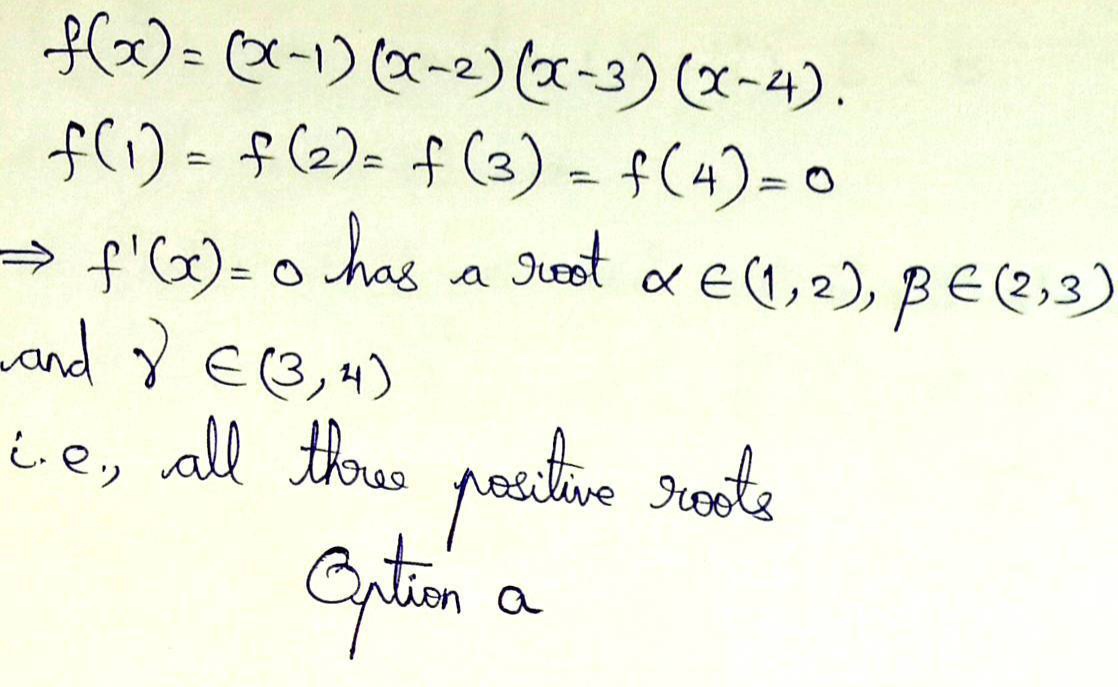 f(x) = (x-1) (x-2) (x-3) (x-4).
f(1) = f(2) = f(3) = f(4) = 0
⇒ f'(x) = 0 has a root α ∈ (1,2), β ∈ (2,3)
and γ ∈ (3,4)
i.e., all three positive roots
Option a